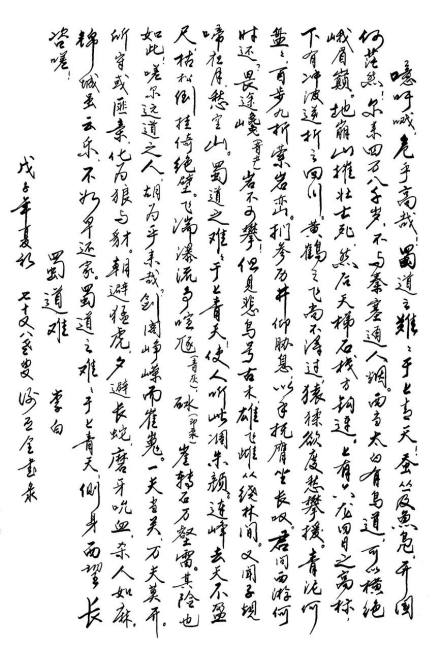 噫吁嚱,危乎高哉!蜀道之难々于上青天!蚕丛及鱼凫,开国
何茫然!尔来四万八千岁,不与秦塞通人烟。西当太白有鸟道,可以横绝
峨眉巅。地崩山摧壮士死,然后天梯石栈方钩连。上有六龙回日之高标,
下有冲波逆折之回川。黄鹤之飞尚不得过,猿猱欲度愁攀援。青泥何
盘々,百步九折萦岩峦。扪参历井仰胁息,以手抚膺坐长叹。君问西游何
时还?畏途巉(音产)岩不可攀!但见悲鸟号古木,雄飞雌从绕林间。又闻子规
啼夜月愁空山。蜀道之难々于上青天,使人听此凋朱颜。连峰去天不盈
尺,枯松倒挂倚绝壁。飞湍瀑流争喧豗(音灰)砯崖转石万壑雷。其险也
如此!嗟尔远道之人,胡为乎来哉。剑阁峥嵘而崔嵬。一夫当关,万夫莫开。
所守或匪亲,化为狼与豺。朝避猛虎,夕避长蛇,磨牙吮血,杀人如麻。
锦城虽云乐,不如早还家。蜀道之难々于上青天,侧身西望长
咨嗟!
蜀道难 李白
戊子年夏 七十又八叟 书录